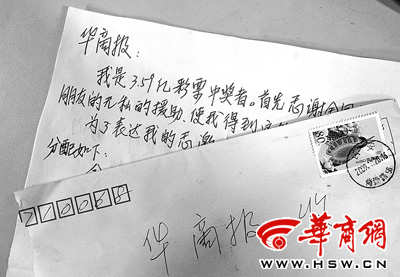 华商报:
我是3.59亿彩票中奖者。首先感谢全国
朋友的无私的援助,使我得到
为了表达我的感谢
分配如下:
华商报 收
华商网
WWW.HSW.CN